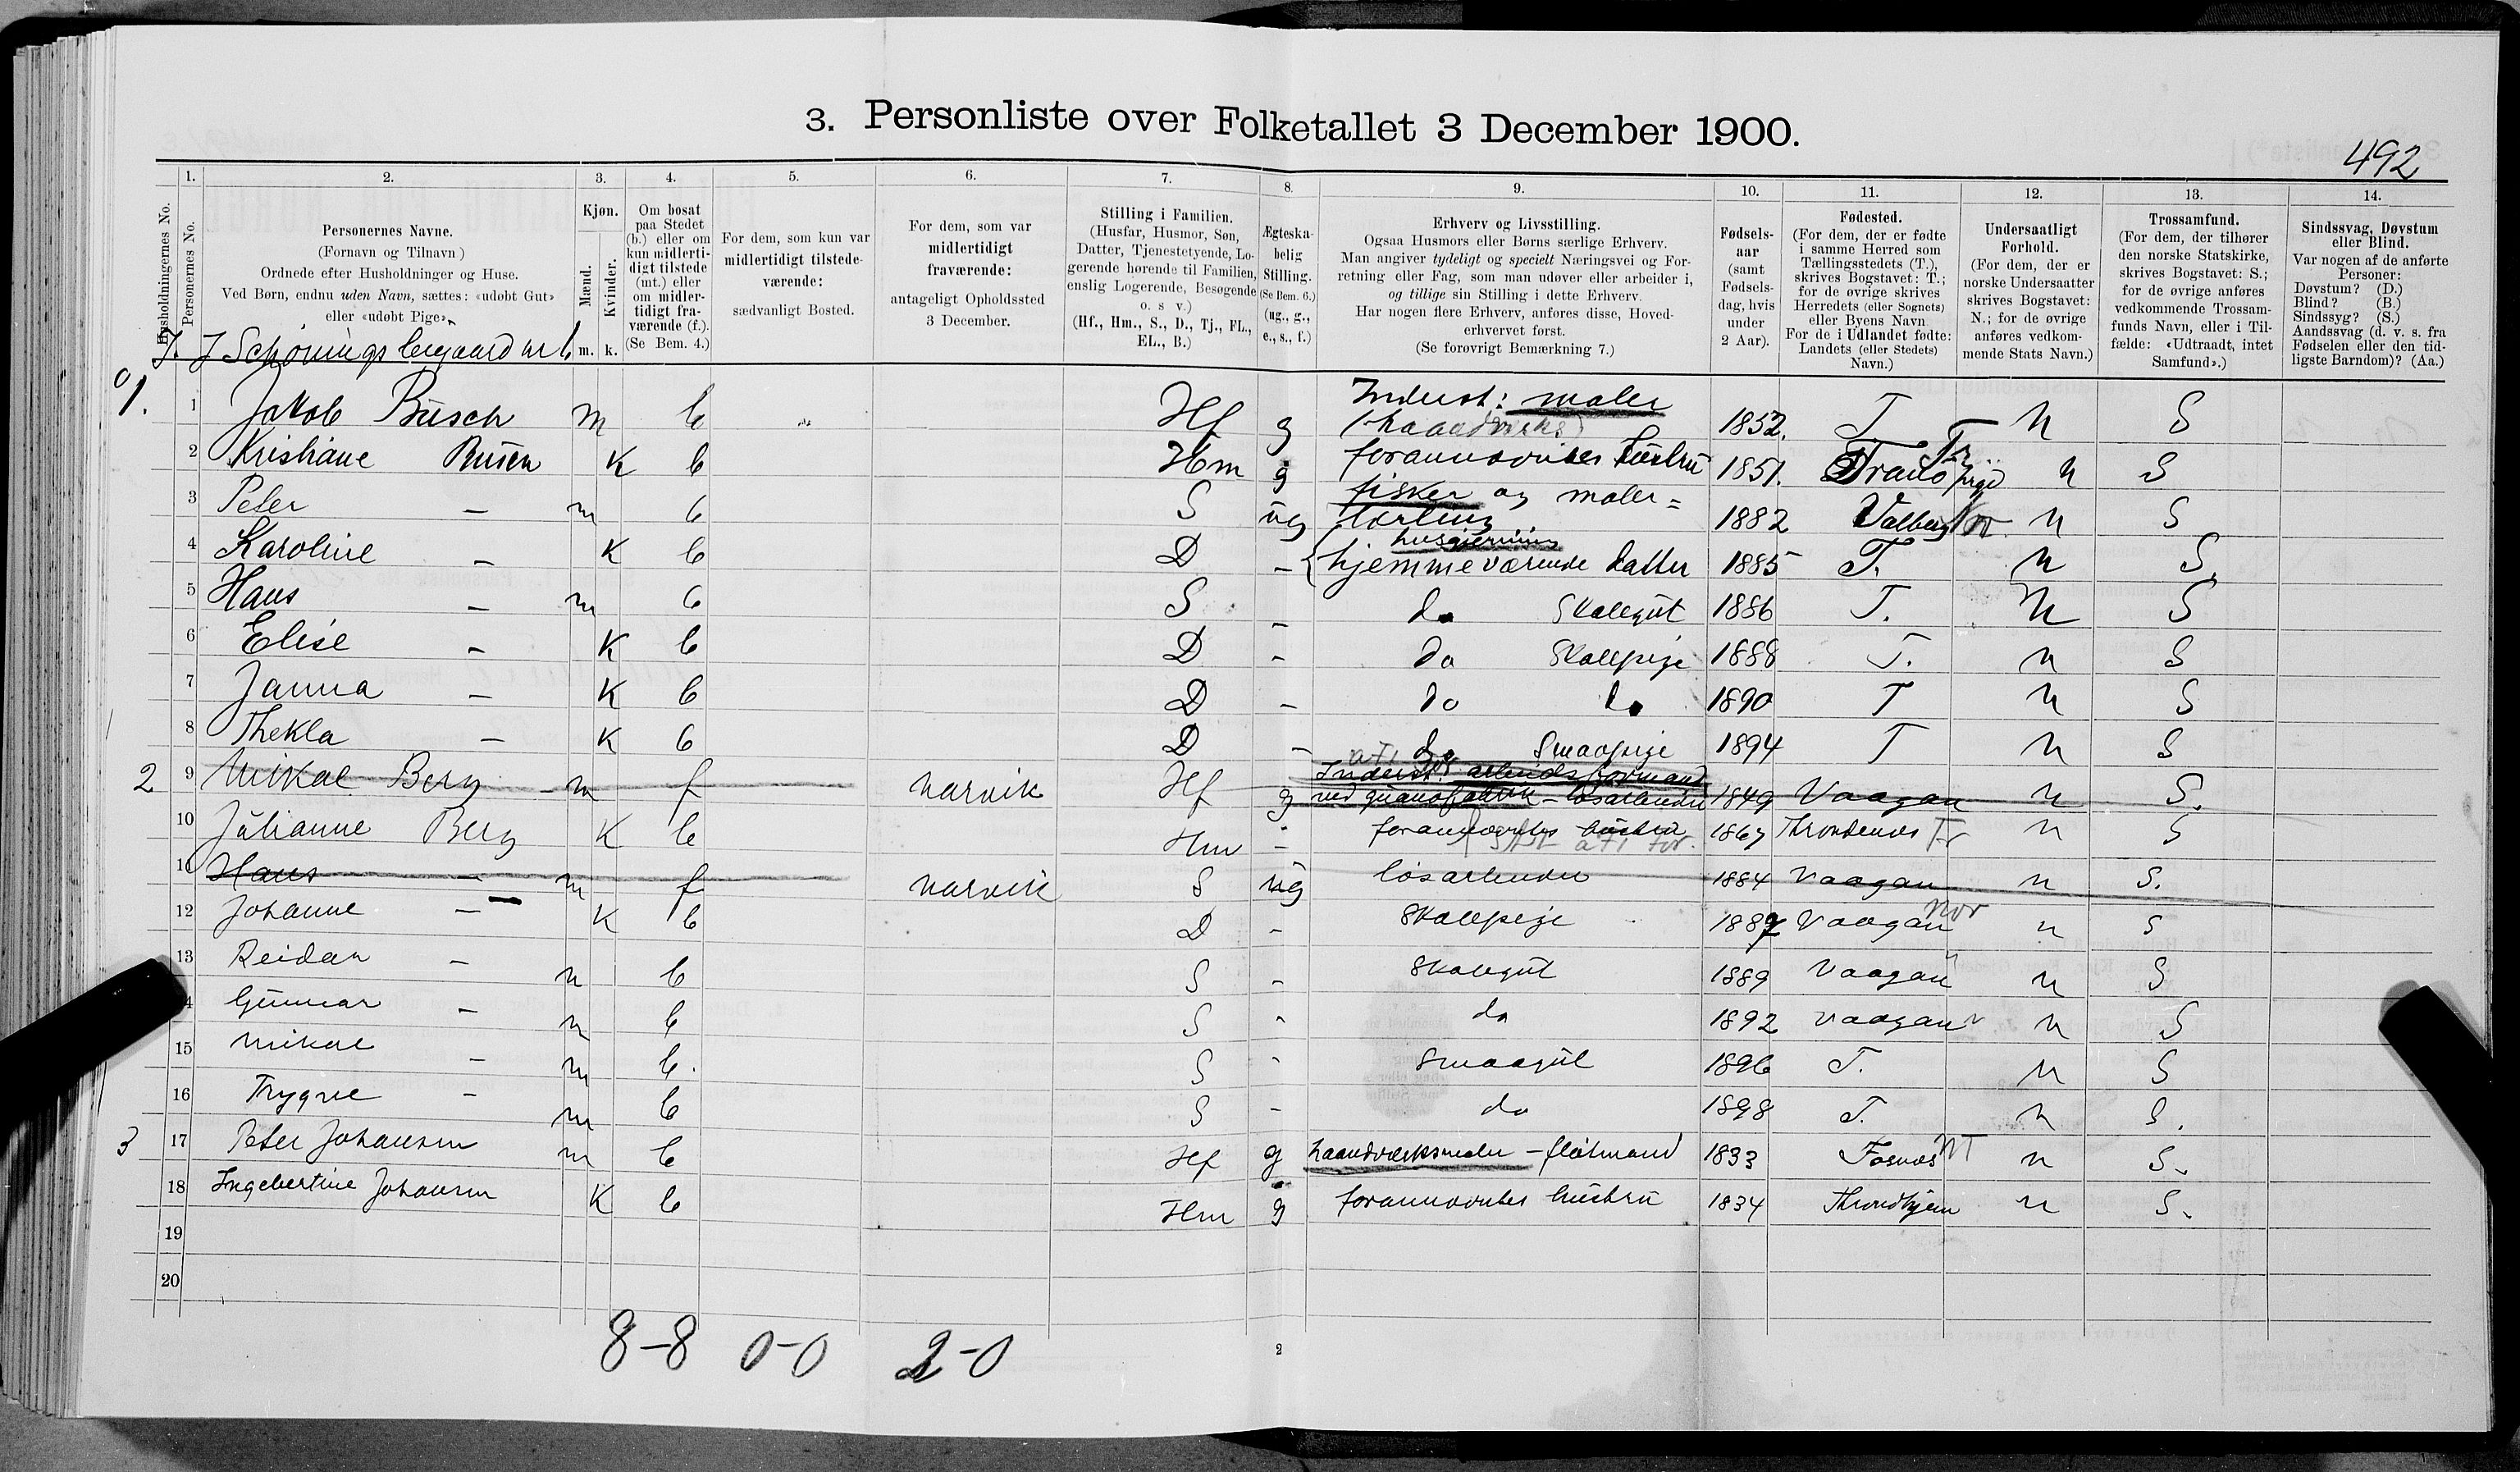 3. Personliste over Folketallet 3 December 1900.
492
1. 2. 3. 4. 5. 6. 7. 8. 9. 10. 11. 12. 13. 14.
Husholdningernes No.
Personernes No.
Personernes Navne.
(Fornavn og Tilnavn)
Ordnede efter Husholdninger og Huse.
Ved Børn, endnu uden Navn, sættes: «udøbt Gut»
eller «udøbt Pige».
Kjøn.
Mænd.
Kvinder.
m. k.
Om bosat
paa Stedet
(b.) eller om
kun midlerti-
digt tilstede
(mt.) eller
om midler-
tidigt fra-
værende (f.).
(Se Bem. 4.)
For dem, som kun var
midlertidigt tilstede-
værende:
sædvanligt Bosted.
For dem, som var
midlertidigt
fraværende:
antageligt Opholdssted
3 December.
Stilling i Familien.
(Husfar, Husmor, Søn,
Datter, Tjenestetyende, Lo-
gerende hørende til Familien,
enslig Logerende, Besøgende
o. s v.)
(Hf., Hm., S., D., Tj., FL.,
EL., B.)
Ægteska-
belig
Stilling.
(Se Bem. 6.)
(ug., g.,
e., s., f.)
Erhverv og Livsstilling.
Ogsaa Husmors eller Børns særlige Erhverv.
Man angiver tydeligt og specielt Næringsvei og For-
retning eller Fag, som man udøver eller arbeider i,
og tillige sin Stilling i dette Erhverv.
Har nogen flere Erhverv, anføres disse, Hoved-
erhvervet først.
(Se forøvrigt Bemærkning 7.)
Fødsels-
aar
(samt
Fødsels-
dag, hvis
under
2 Aar).
Fødested.
(For dem, der er fødte
i samme Herred som
Tællingsstedets (T.),
skrives Bogstavet: T.;
for de øvrige skrives
Herredets (eller Sognets)
eller Byens Navn
For de i Udlandet fødte:
Landets (eller Stedets)
Navn.)
Undersaatligt
Forhold.
(For dem, der er
norske Undersaatter
skrives Bogstavet:
N.; for de øvrige
anføres vedkom-
mende Stats Navn.)
Trossamfund.
(For dem, der tilhører
den norske Statskirke,
skrives Bogstavet: S.;
for de øvrige anføres
vedkommende Trossam-
funds Navn, eller i Til-
fælde: «Udtraadt, intet
Samfund».)
Sindssvag, Døvstum
eller Blind.
Var nogen af de anførte
Personer:
Døvstum? (D.)
Blind? (B.)
Sindssyg? (S.)
Aandssvag (d. v. s. fra
Fødselen eller den tid-
ligste Barndom)? (Aa.)
J Schønings
1. 1 Jakob Busch m b Hf g Indust: maler 1852. T N S
2 Kristiane Busch K b Hm g forannævntes hustru 1851. Tranø Tr N S
3 Peter – m b S ug fisker og maler= lærling 1882 Valberg No N S
4 Karoline – K b D – husgjerning hjemmeværende datter 1885 T. N S.
5 Hans – m b S – do Skolegut 1886 T. N S
6 Elise – K b D – do Skolepige 1888 T. N S
7 Janna – K b D – do do 1890 T N S
8 Thekla – K b D – do Smaapige 1894 T N S
2 9 Mikal Berg m f Narvik Hf g Indust: arbeidsformand ved guanofabrik – løsarbeider 1849 Vaagan N S.
10 Julianne Berg K b Hm – forannævntes hustru 1867 Throndenes Tr N S
11 Hans – m f Narvik S ug løsarbeider 1884 Vaagan N S.
12 Johanne – K b D – Skolepige 1887 Vaagan Nor N S
13 Reidar – m b S – Skolegut 1889 Vaagan N S
14 Gunnar – m b S – do 1892 Vaagan N S
15 Mikal – m b. S – Smaagut 1896 T. N S
16 Trygve – m b S – do 1898 T. N S.
3 17 Peter Johansen m b Hf g haandværksmaler – fløtmand 1833 Fosnæs NT N S.
18 Ingebertine Johansen K b Hm g forannævntes hustru 1834 Throndhjem N S.
19
20
8–8 0–0 2–0
2